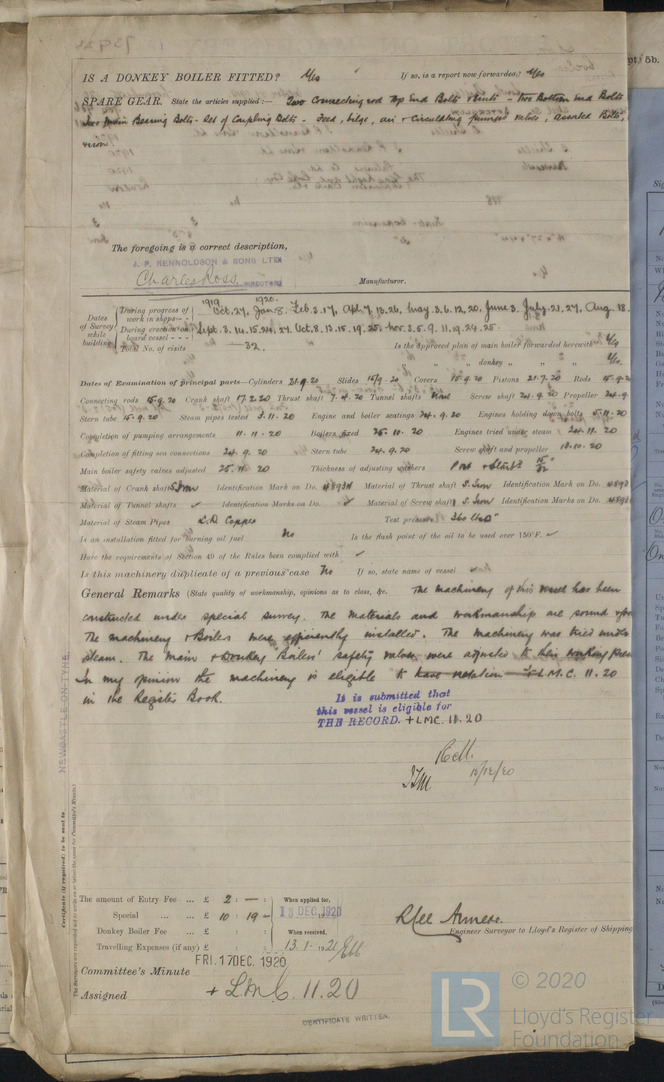 IS A DONKEY BOILER FITTED? Yes If so, is a report now forwarded? Yes
SPARE GEAR. State the articles supplied:— Two Connecting rod Top End Bolts & Nuts - Two Bottom End Bolts
Two Main Bearing Bolts - Set of Coupling Bolts - Feed, bilge, air & Circulating pumps valves, assorted Bolts,
The foregoing is a correct description,
J. P. RENNOLDSON & SONS LTD
Charles Ross DIRECTOR Manufacturer.
Dates of Survey while building
During progress of work in shops - - 1919 Oct. 27, 1920 Jan 8, Feb. 3. 17, Apl. 7. 13. 26, May. 3. 6. 12. 20, June 3. July. 21. 27, Aug. 18.
During erection on board vessel - - - Sept. 3. 14. 15. 24. 27. Oct. 8. 13. 15. 19. 25. Nov. 3. 5. 9. 11. 19. 24. 25.
Total No. of visits 32. Is the approved plan of main boiler forwarded herewith Yes
" " " donkey " " " Yes.
Dates of Examination of principal parts—Cylinders 21.9.20 Slides 15/9.20 Covers 15.9.20 Pistons 21.7.20 Rods 15.9.2
Connecting rods 15.9.20 Crank shaft 17.2.20 Thrust shaft 7.4.20 Tunnel shafts Screw shaft 24.9.20 Propeller 24.9.
Stern tube 15.9.20 Steam pipes tested 3.11.20 Engine and boiler seatings 24.9.20 Engines holding down bolts 5.11.20
Completion of pumping arrangements 11.11.20 Boilers fixed 25.10.20 Engines tried under steam 24.11.20
Completion of fitting sea connections 24.9.20 Stern tube 24.9.20 Screw shaft and propeller 18.10.20
Main boiler safety valves adjusted 25.11.20 Thickness of adjusting washers
Material of Crank shaft S. Iron Identification Mark on Do. Material of Thrust shaft S. Iron Identification Mark on Do.
Material of Tunnel shafts ✓ Identification Marks on Do. ✓ Material of Screw shaft S. Iron Identification Marks on Do.
Material of Steam Pipes S.D Copper Test pressure 360 lbs
Is an installation fitted for burning oil fuel No Is the flash point of the oil to be used over 150°F. ✓
Have the requirements of Section 49 of the Rules been complied with ✓
Is this machinery duplicate of a previous case No If so, state name of vessel
General Remarks (State quality of workmanship, opinions as to class, &c. The machinery of this vessel has been
constructed under special survey. The materials and workmanship are sound
The machinery & Boilers were efficiently installed. The machinery was tried under
steam. The main & Donkey Boilers' safety valves were adjusted to their working pres
In my opinion the machinery is eligible to have notation + L. M. C. 11.20
in the Register Book.
It is submitted that
this vessel is eligible for
THE RECORD. + LMC. 11. 20
16/12/20
NEWCASTLE-ON-TYNE
Certificate (if required) to be sent to
The amount of Entry Fee ... £ 2 : — : When applied for,
Special ... ... £ 10 : 19 — 13 DEC. 1920
Donkey Boiler Fee ... £ : : When received,
Travelling Expenses (if any) £ : : 13. 1. 1921
Engineer Surveyor to Lloyd's Register of Shipping
FRI. 17 DEC. 1920
Committee's Minute
Assigned + LMC. 11.20
CERTIFICATE WRITTEN.
LR
© 2020
Lloyd's Register
Foundation